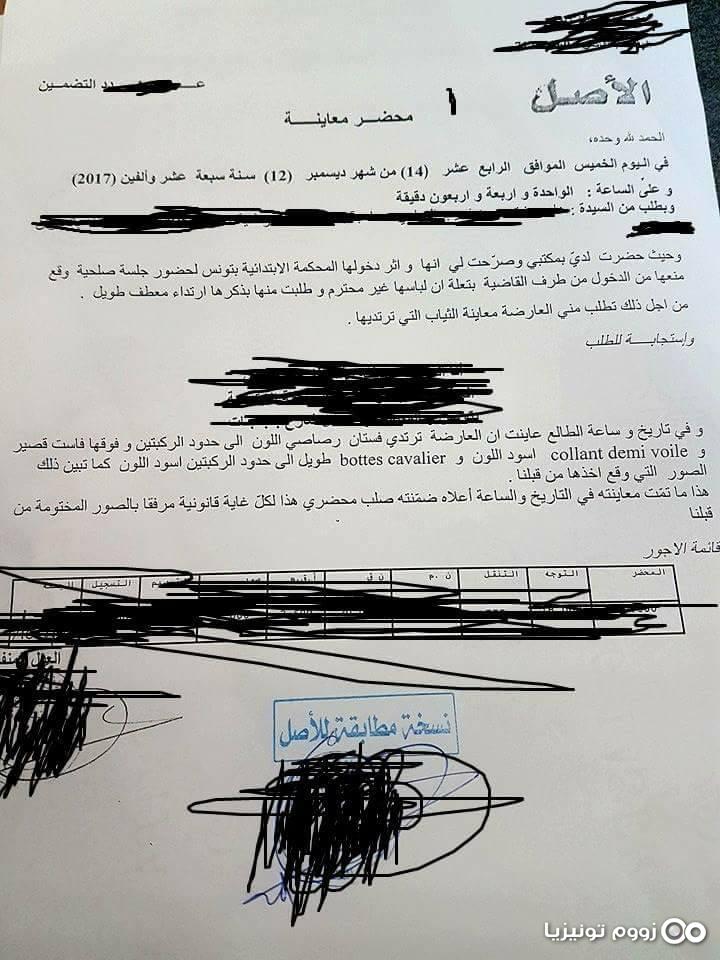 الأصل
عـ دد التضمين
محضــر معاينــــة
الحمد لله وحده،
في اليوم الخميس الموافق الرابع عشر (14) من شهر ديسمبر (12) سنة سبعة عشر وألفين (2017)
و على الساعة : الواحدة و اربعة و اربعون دقيقة
وبطلب من السيدة :
وحيث حضرت لديّ بمكتبي وصرّحت لي انها و اثر دخولها المحكمة الابتدائية بتونس لحضور جلسة صلحية وقع
منعها من الدخول من طرف القاضية بتعلة ان لباسها غير محترم و طلبت منها بذكرها ارتداء معطف طويل .
من اجل ذلك تطلب مني العارضة معاينة الثياب التي ترتديها .
وإستجابــــة للطلب
و في تاريخ و ساعة الطالع عاينت ان العارضة ترتدي فستان رصاصي اللون الى حدود الركبتين و فوقها فاست قصير
و collant demi voile اسود اللون و bottes cavalier طويل الى حدود الركبتين اسود اللون كما تبين ذلك
الصور التي وقع اخذها من قبلنا .
هذا ما تمّت معاينته في التاريخ والساعة أعلاه ضمّنته صلب محضري هذا لكلّ غاية قانونية مرفقا بالصور المختومة من
قبلنا
قائمة الاجور
المحضر التوجه التنقل ن .م ن ق التسجيل
العدل المنفذ
نسخة مطابقة للأصل
زووم تونيزيا